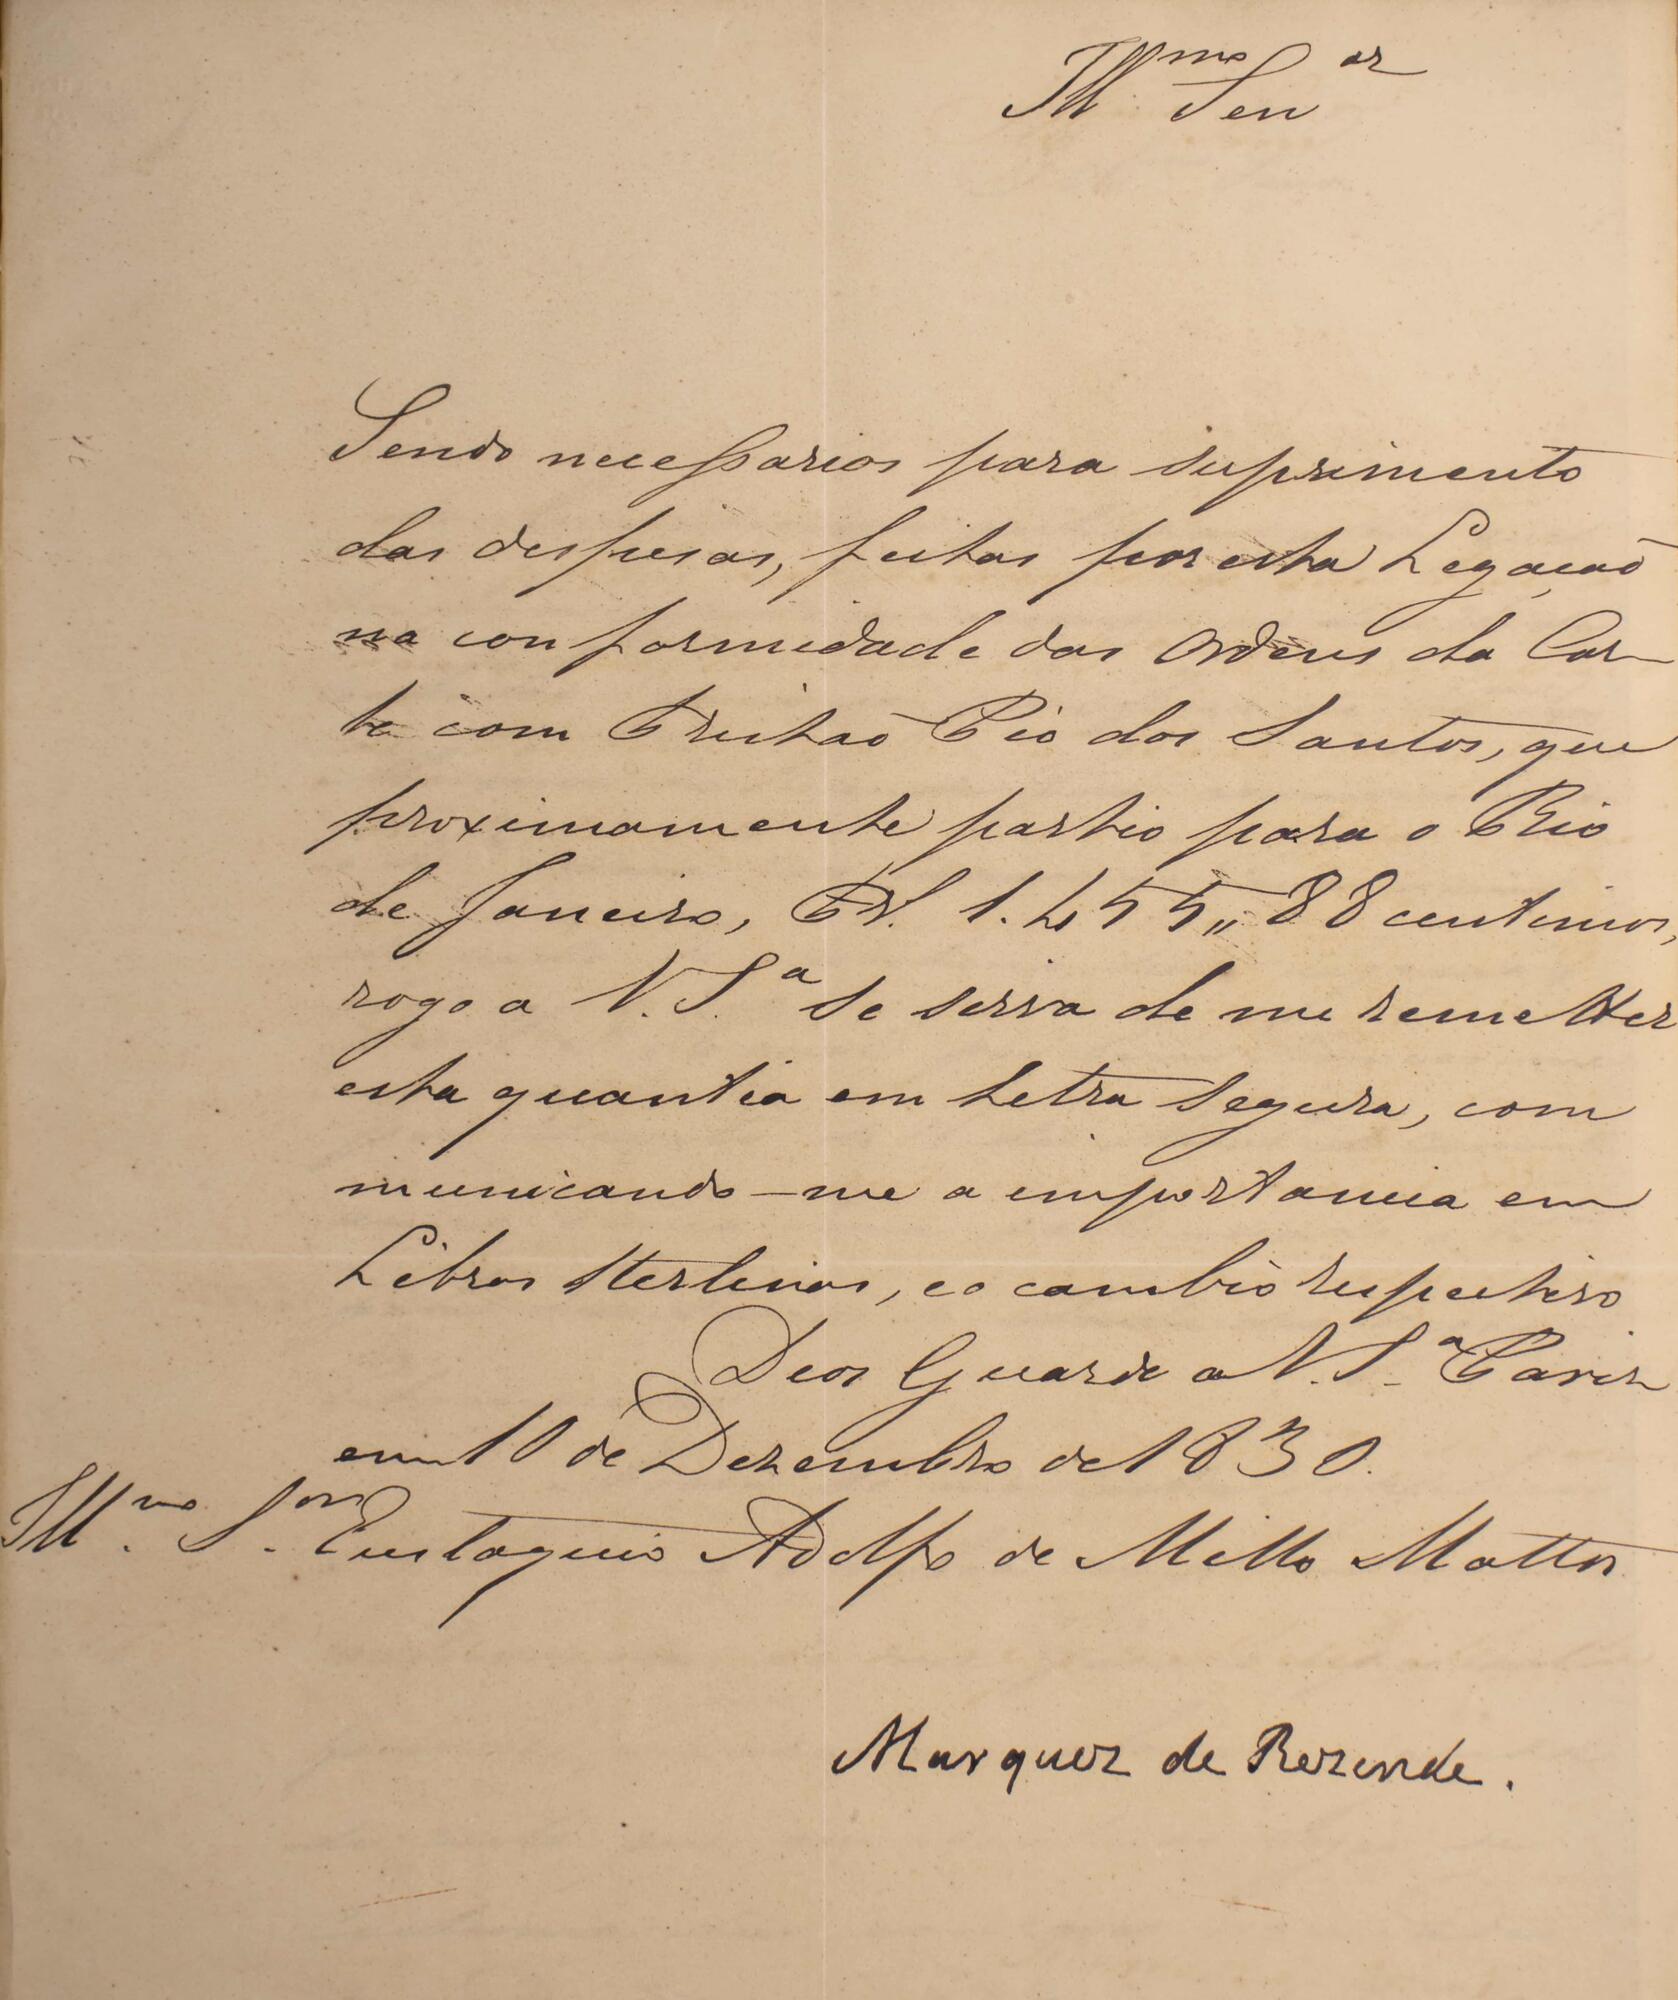 Ill.mo Sen.or
Sendo necessarios para suprimento
das despesas, feitas por esta Legação
na conformidade das Ordens da Cor-
te com Tristaõ Pio dos Santos, que
proximamente partio para o Rio
de Janeiro, Fr. 1.455,,88 centimos,
rogo a V. S.a se serva de me remetter
esta quantia em Letra segura, com
municando-me a importancia em
Libras Sterlinas, e o cambio respectivo
Deos Guarde a V. S.a Pariz
em 10 de Dezembro de 1830.
Ill.mo S.or Eustaquio Adolfo de Mello Mattos
Marquez de Rezende.